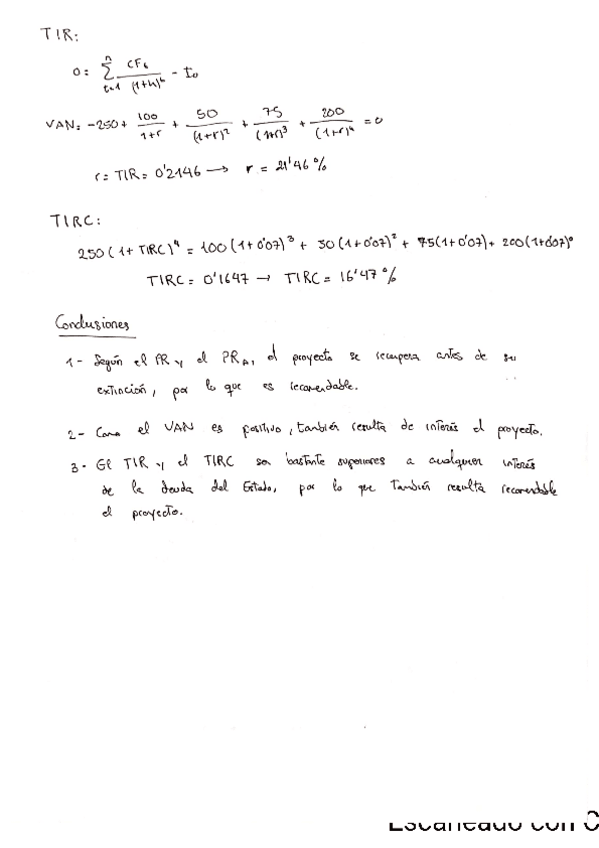 TIR:
0 = \sum_{t=1}^{n} \frac{CF_t}{(1+k)^t} - I_0
VAN = -250 + \frac{100}{1+r} + \frac{50}{(1+r)^2} + \frac{75}{(1+r)^3} + \frac{200}{(1+r)^4} = 0
r = TIR = 0'2146 → r = 21'46 %
TIRC:
250 (1 + TIRC)^4 = 100 (1+0'07)^3 + 50 (1+0'07)^2 + 75 (1+0'07) + 200 (1+0'07)^0
TIRC = 0'1647 → TIRC = 16'47 %
Conclusiones
1 - Según el PR y el PR_A, el proyecto se recupera antes de su
extinción, por lo que es recomendable.
2 - Como el VAN es positivo, también resulta de interés el proyecto.
3 - El TIR y el TIRC son bastante superiores a cualquier interés
de la deuda del Estado, por lo que también resulta recomendable
el proyecto.
Escaneado con C